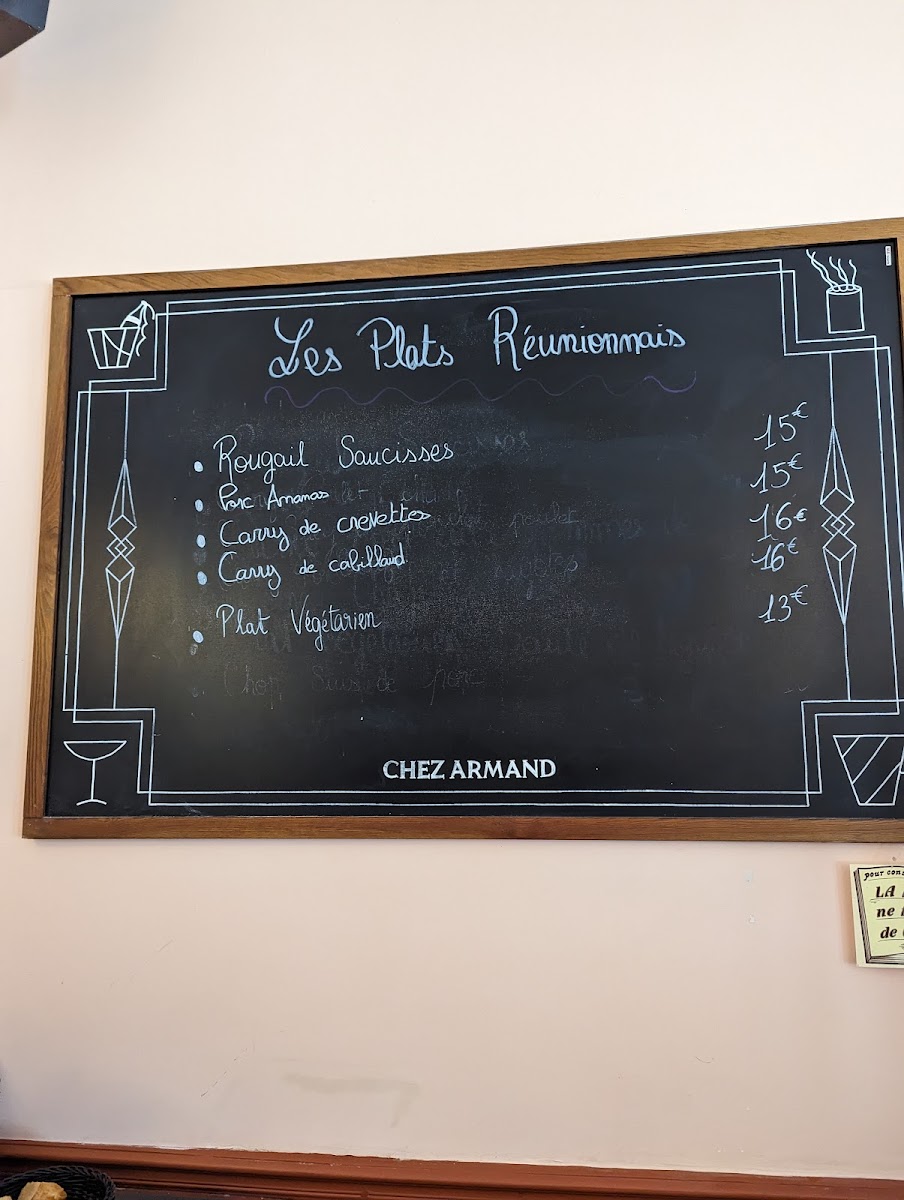 Les Plats Réunionnais
Rougail Saucisses 15€
Porc Ananas 15€
Carry de crevettes 16€
Carry de cabillaud 16€
Plat Végétarien 13€
Chop Suis de porc
CHEZ ARMAND
pour cons
LA
ne
de